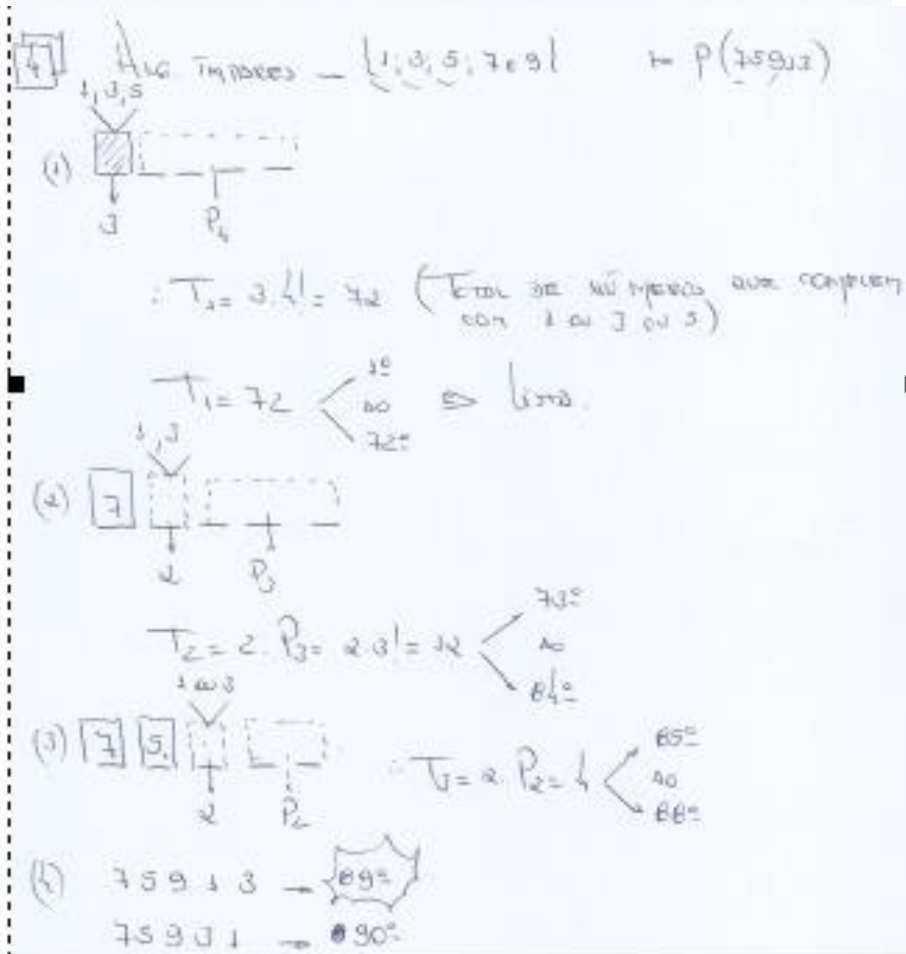 4 Alg. ímpares — {1, 3, 5, 7 e 9} P(75913)
1, 3, 5
(1)
3 P4
∴ T1 = 3.4! = 72 (Total de números que começam
com 1 ou 3 ou 5)
T1 = 72 1º
ao
72º
1, 3
(2) 7
2 P3
T2 = 2.P3 = 2.3! = 12 73º
ao
84º
1 ou 3
(3) 7 5
2 P2
∴ T3 = 2.P2 = 4 85º
ao
88º
(4) 7 5 9 1 3 → 89º
7 5 9 3 1 → 90º